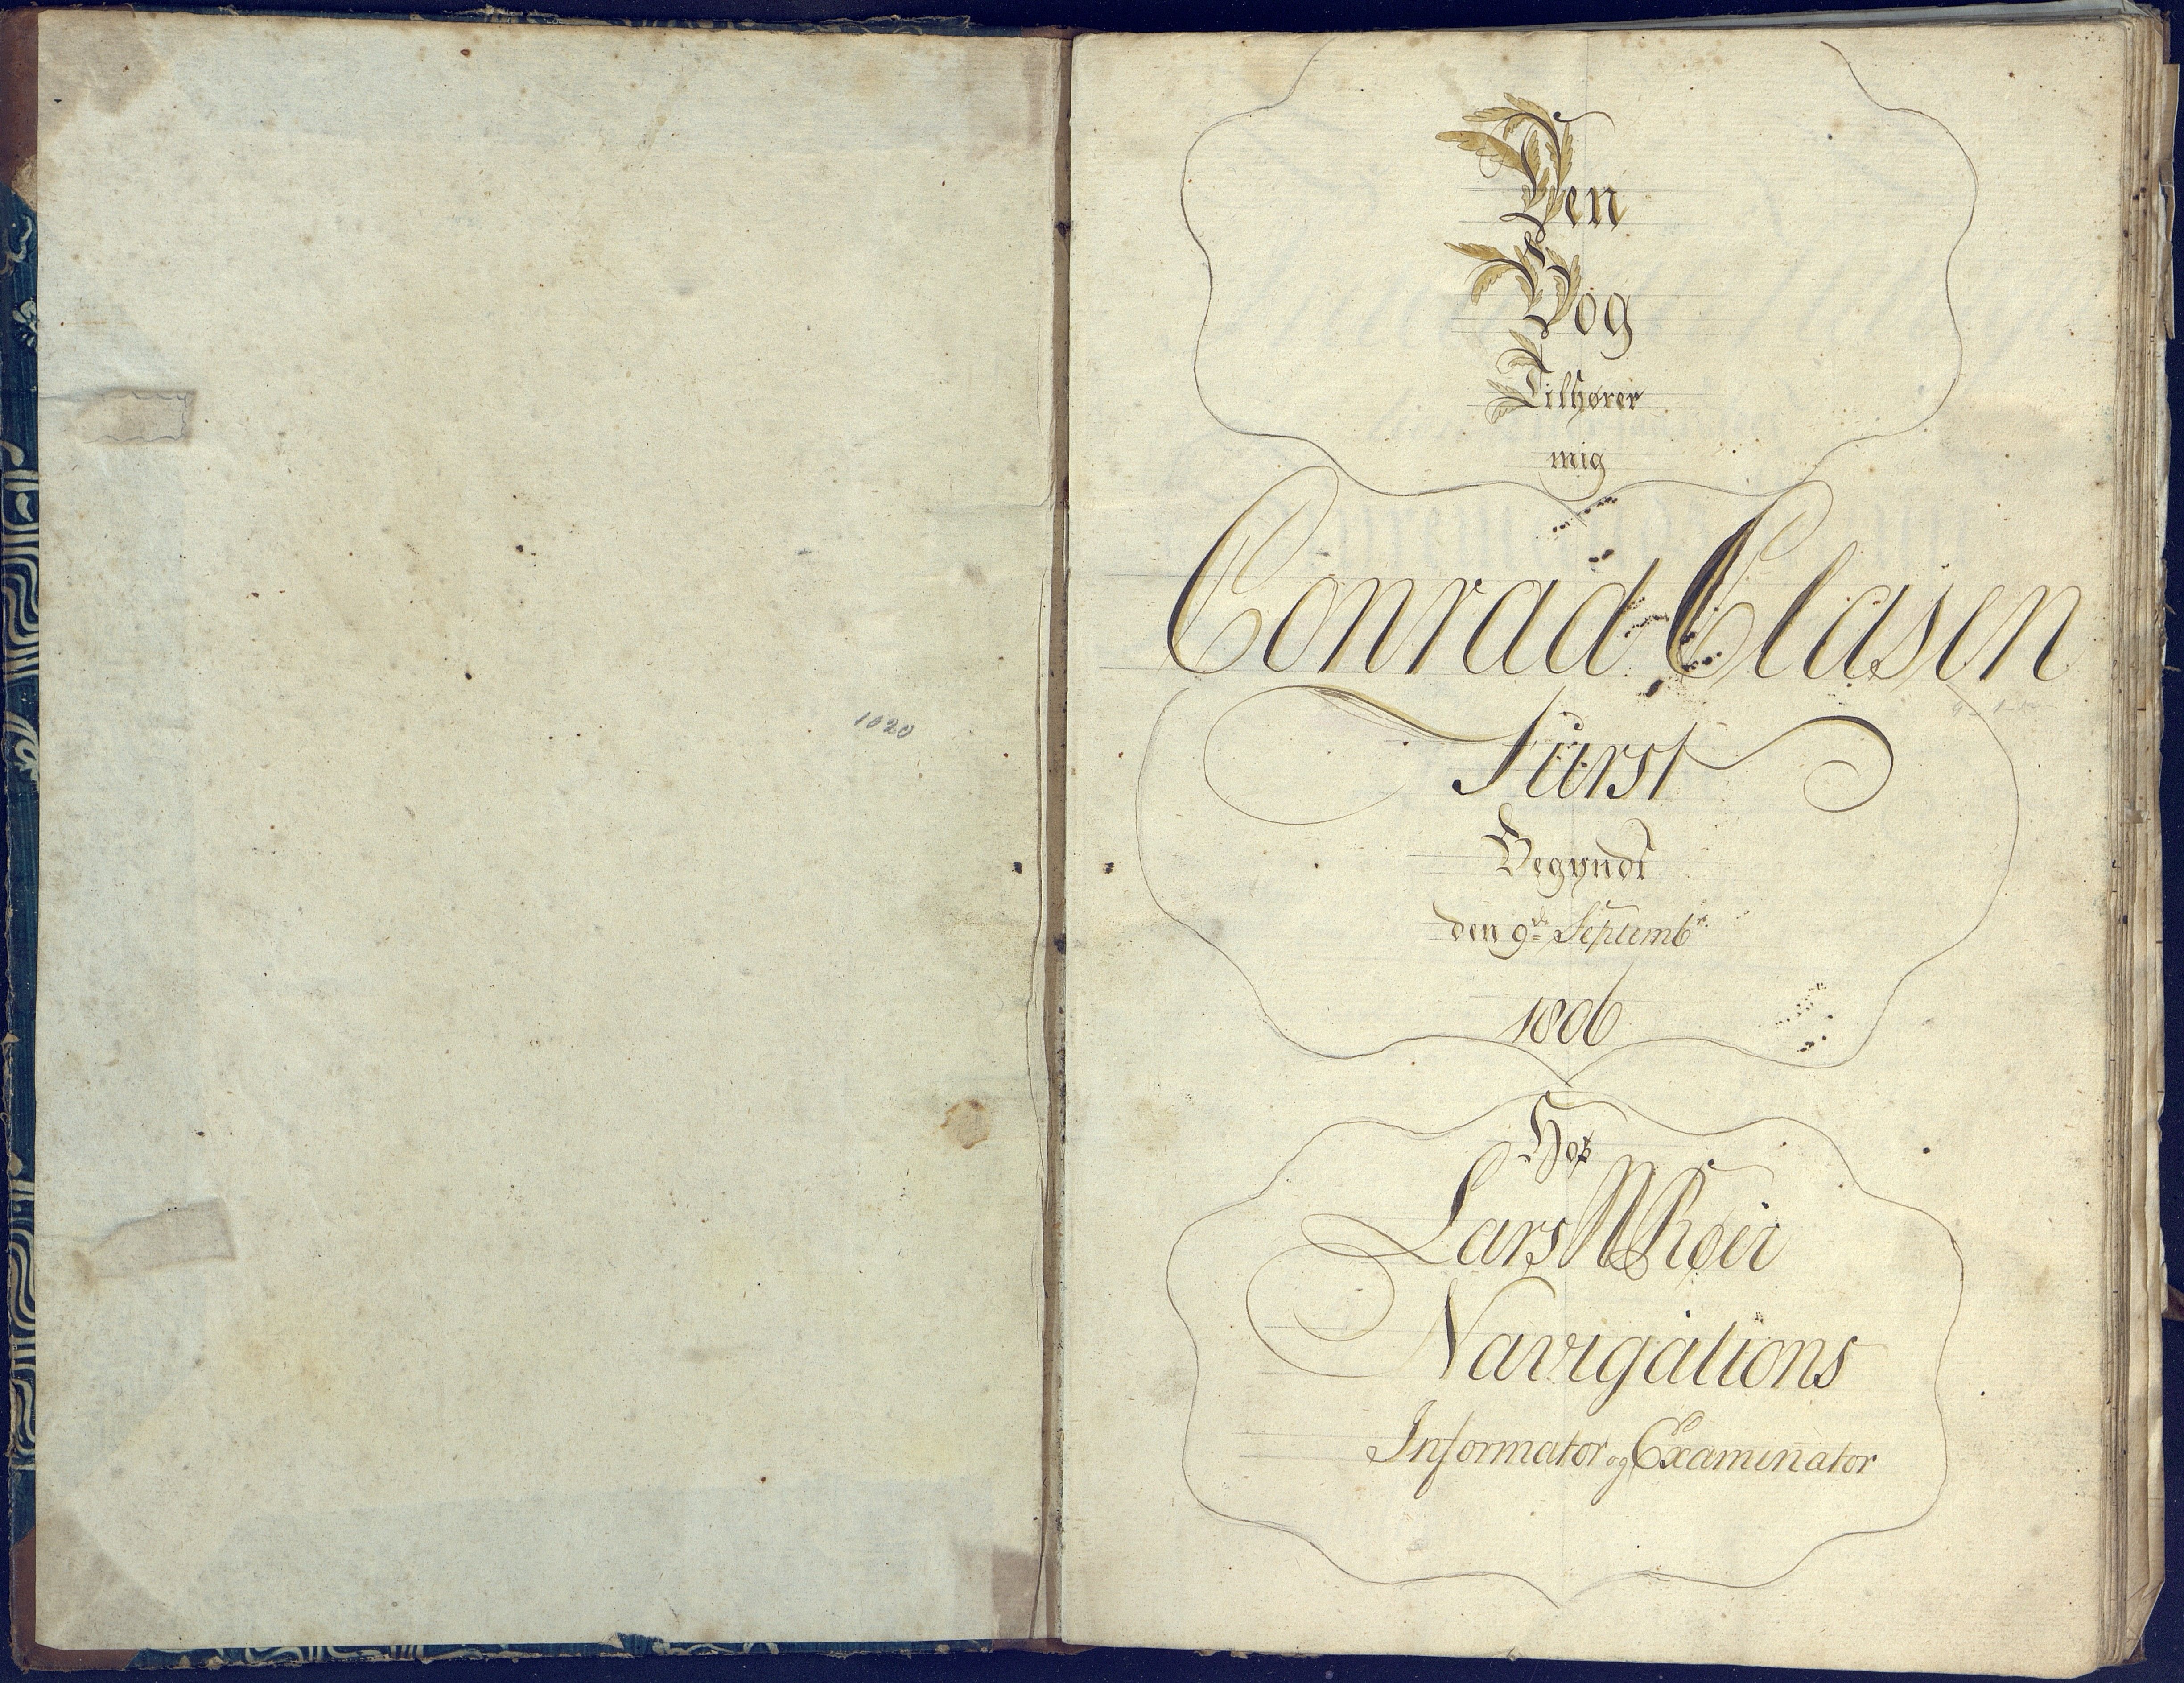 1020
Den
Bog
Tilhører
mig
Conrad Clasen
Fürst
Begyndt
den 9de Septembr.
1806
Hos
Lars N Røer
Navigations
Informator og Examinator